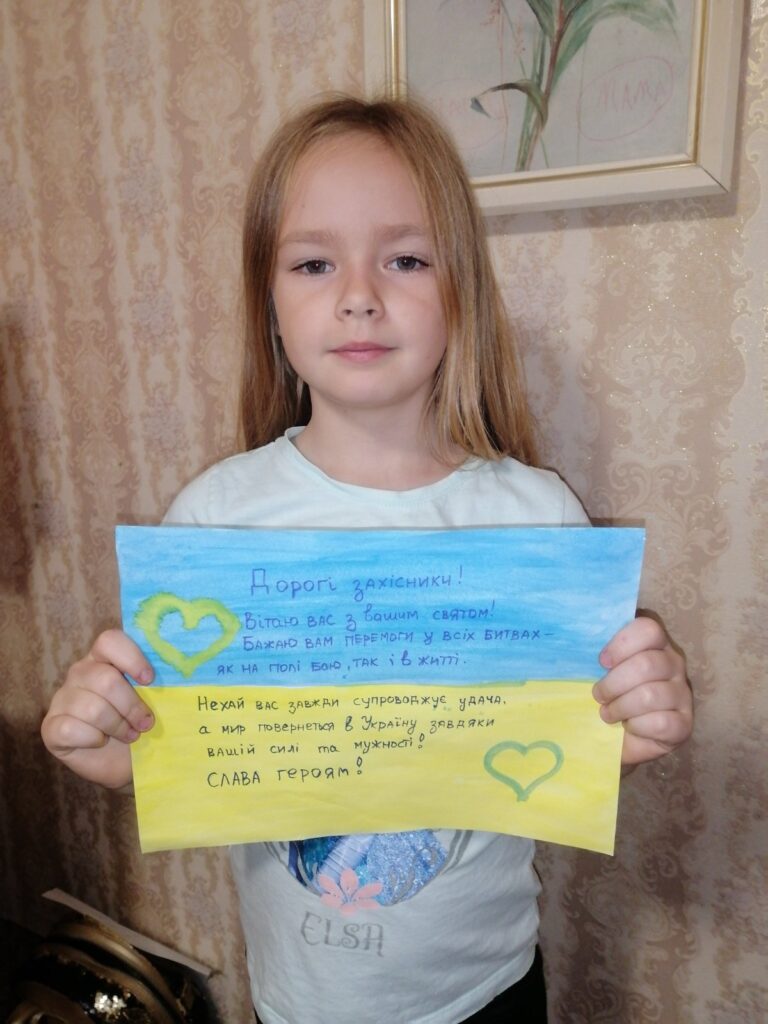 МАМА
Дорогі захісники!
Вітаю вас з вашим святом!
Бажаю вам перемоги у всіх битвах –
як на полі бою, так і в житті.
Нехай вас завжди супроводжує удача,
а мир повернеться в Україну завдяки
вашій силі та мужності!
Слава героям!
ELSA